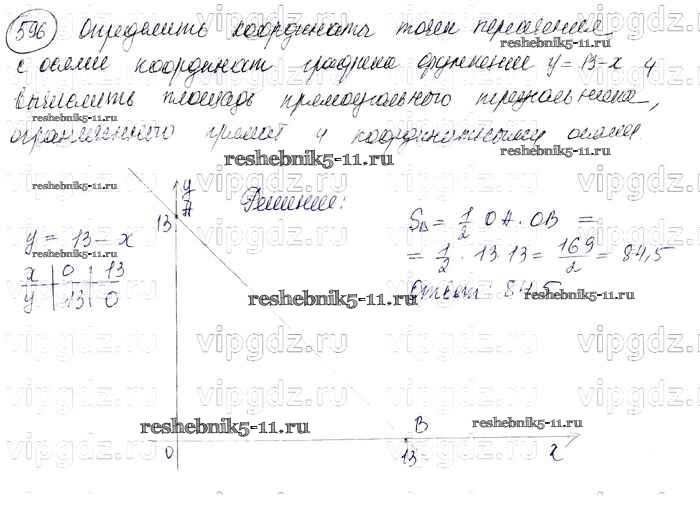 596 Определить координаты точек пересечения
с осями координат графика функции y = 13 - x и
вычислить площадь прямоугольного треугольника,
ограниченного прямой и координатными осями.
reshebnik5-11.ru
reshebnik5-11.ru
reshebnik5-11.ru
Решение:
y
A
13
y = 13 - x
reshebnik5-11.ru
x 0 13
y 13 0
S△ = 1/2 OA · OB =
= 1/2 · 13 · 13 = 169/2 = 84,5
reshebnik5-11.ru
Ответ: 84,5
reshebnik5-11.ru
reshebnik5-11.ru
vipgdz.ru vipgdz.ru vipgdz.ru vipgdz.ru
reshebnik5-11.ru
B
reshebnik5-11.ru
0
13
x